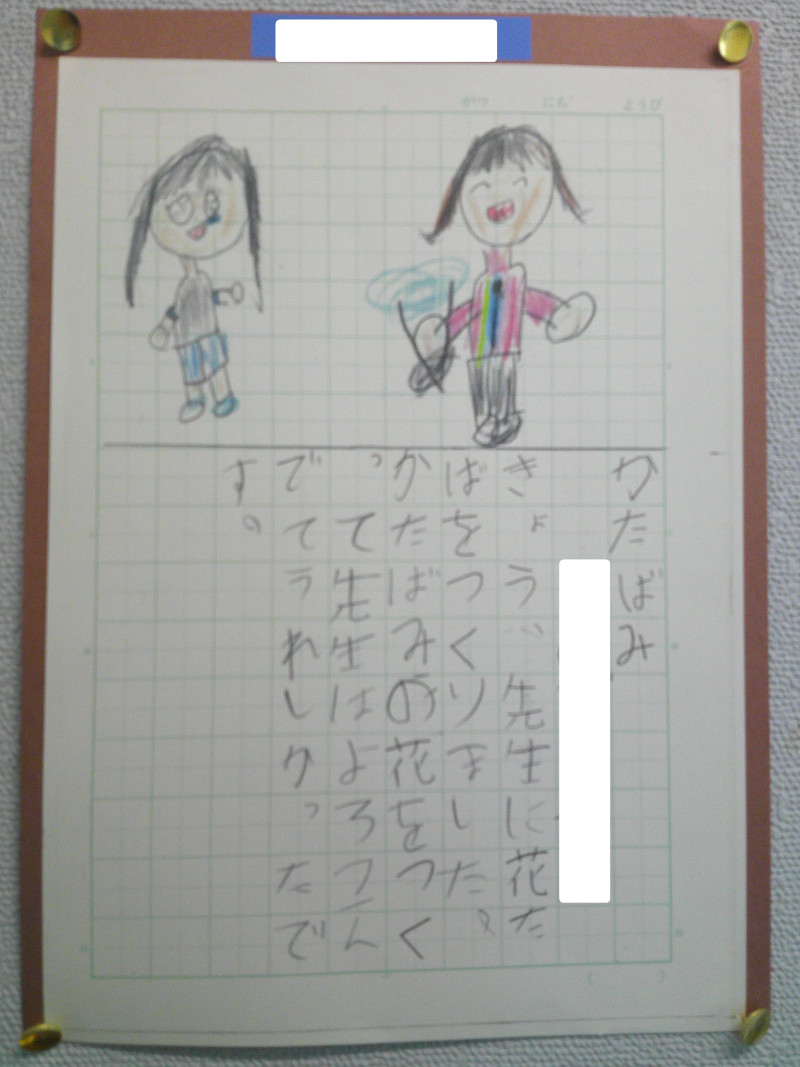 がつ にち ようび
かたばみ
きょう、先生に花た
ばをつくりました。
かたばみの花をつく
って先生はよろこん
でてうれしかったで
す。